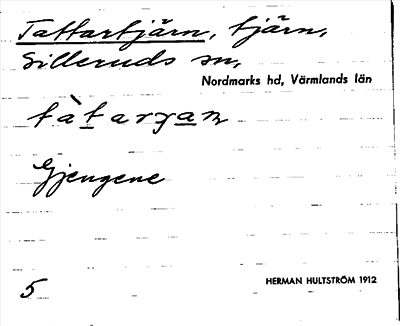 Tattartjärn, tjärn,
Silleruds sn,
Nordmarks hd, Värmlands län
Gjengene
5
HERMAN HULTSTRÖM 1912